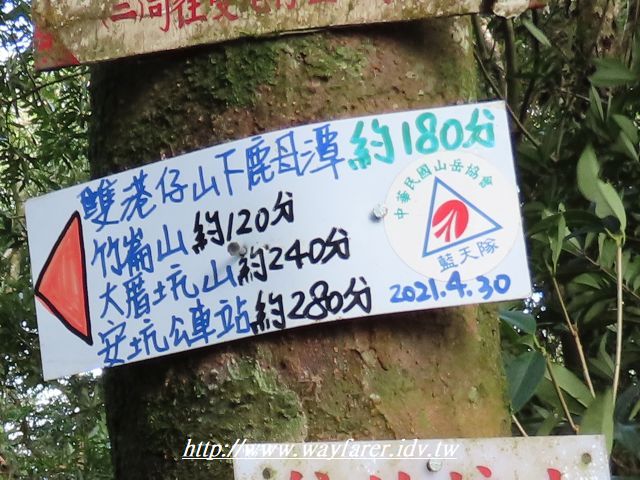 雙港仔山下鹿母潭約180分
竹崙山約120分
大厝坑山約240分
安坑公車站約280分
中華民國山岳協會
藍天隊
2021.4.30
http://www.wayfarer.idv.tw